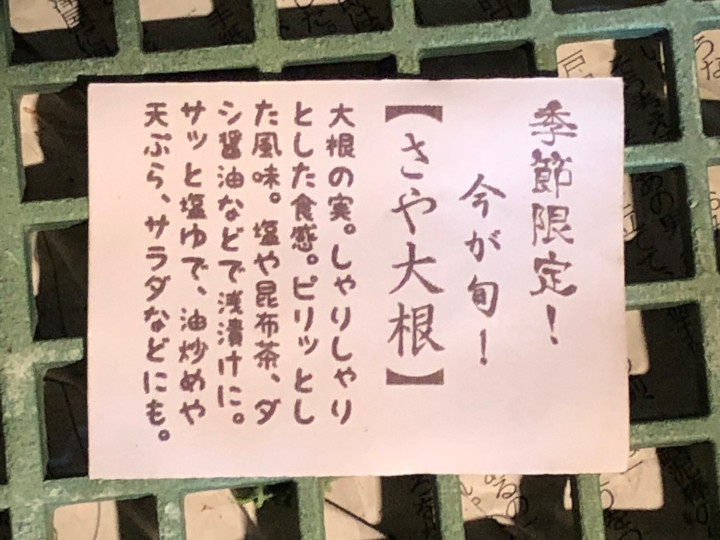 季節限定!
今が旬!
【さや大根】
大根の実。しゃりしゃり
とした食感。ピリッとし
た風味。塩や昆布茶、ダ
シ醤油などで浅漬けに。
サッと塩ゆで、油炒めや
天ぷら、サラダなどにも。